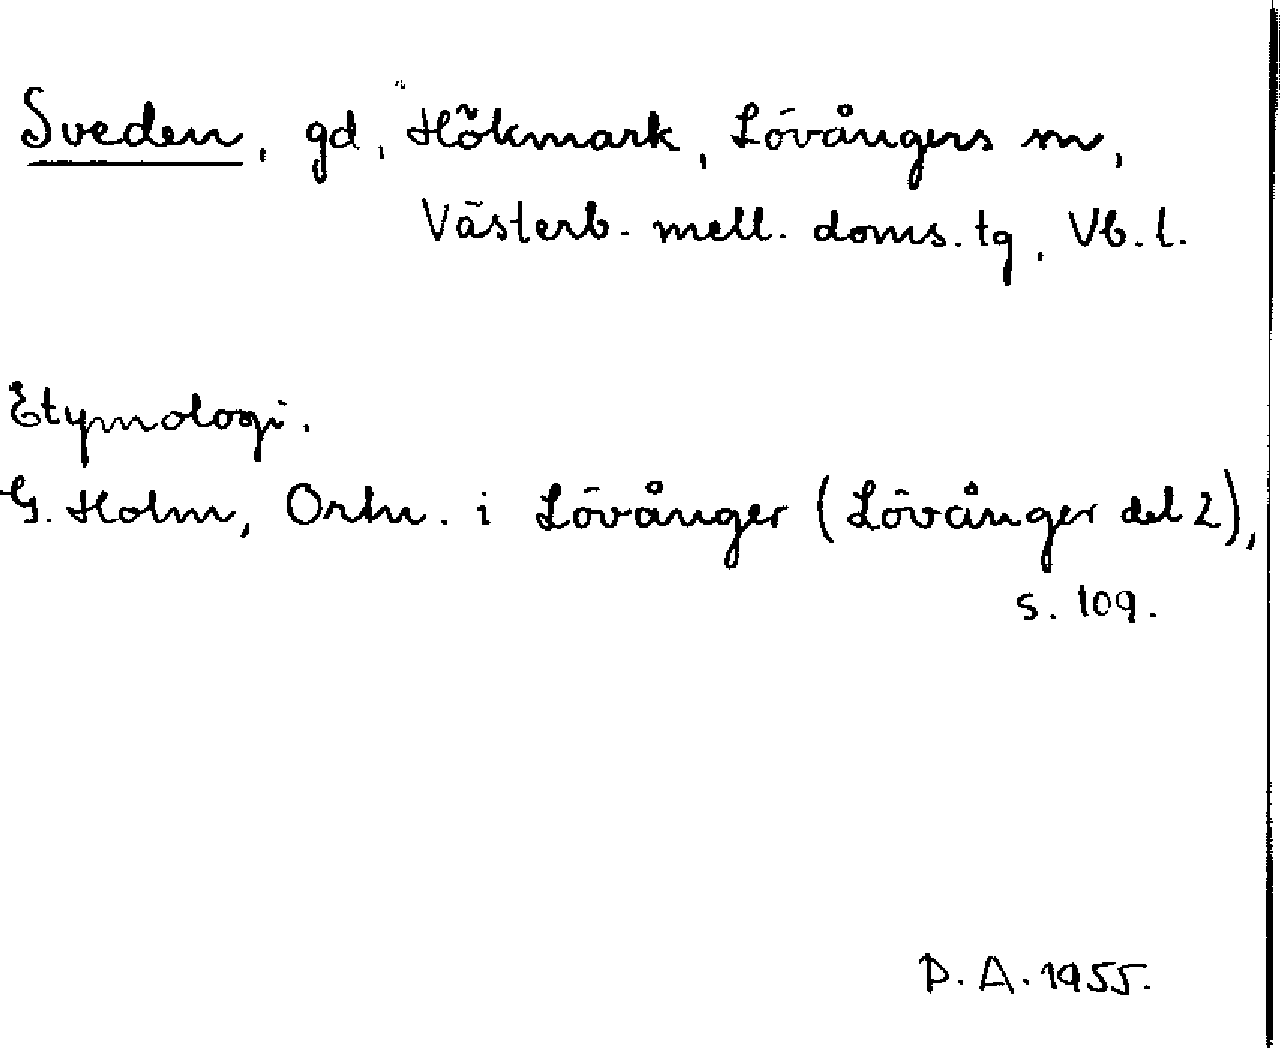 Sveden, gd, Hökmark, Lövångers sn,
Västerb. mell. doms. tg, Vb. l.
Etymologi.
G. Holm, Ortn. i Lövånger (Lövånger del 2),
s. 109.
D. A. 1955.